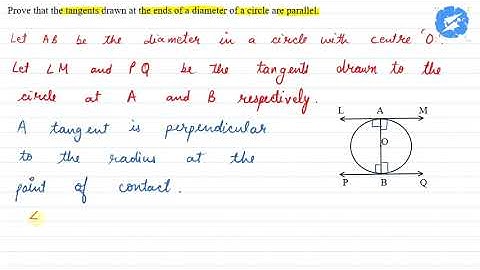 Prove that the tangents drawn at the ends of a diameter of a circle are parallel.
Let AB be the diameter in a circle with centre 'O'.
Let LM and PQ be the tangents drawn to the
circle at A and B respectively.
A tangent is perpendicular
to the radius at the
point of contact.
∠
L A M
O
P B Q